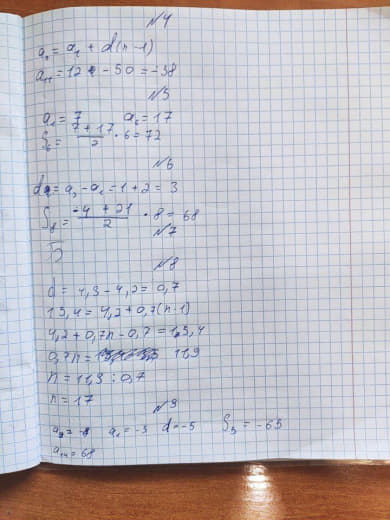 №4
aₙ = a₁ + d(n-1)
a₁₁ = 12 - 50 = -38
№5
a₁ = 7 a₆ = 17
S₆ = (7 + 17)/2 · 6 = 72
№6
d = a₃ - a₂ = 1 + 2 = 3
S₈ = (-4 + 21)/2 · 8 = 68
№7
Б
№8
d = 4,9 - 4,2 = 0,7
15,4 = 4,2 + 0,7(n-1)
4,2 + 0,7n - 0,7 = 15,4
0,7n = 11,9
n = 11,9 : 0,7
n = 17
№9
a₁ = -3 d = -5
a₁₄ = 68